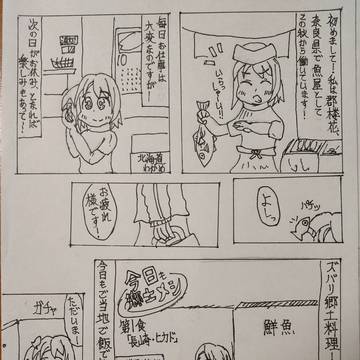 初めまして！私は郡楼花、
奈良県で魚屋として
この秋から働いています！
いらっしゃーい！
いし
毎日お仕事は
大変なのですが…
次の日がお休み、ともなれば
楽しみもあって…！
北海道
わかめ
パチッ
よしっ
お疲れ
様です！
ズバリ郷土料理！
鮮魚
今日も
郷土メシ
第1食
長海・ヒカド。
今日もご当地ご飯で
ただいまー
ガチャ